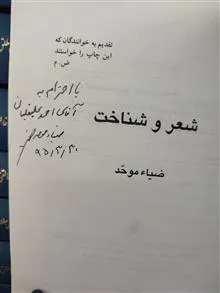 تقدیم به خوانندگان که
این چاپ را خواستند
ض.م
با احترام به
آقای احمد
شعر و شناخت
ضیاء موحّد
۹۵/۳/۳۰